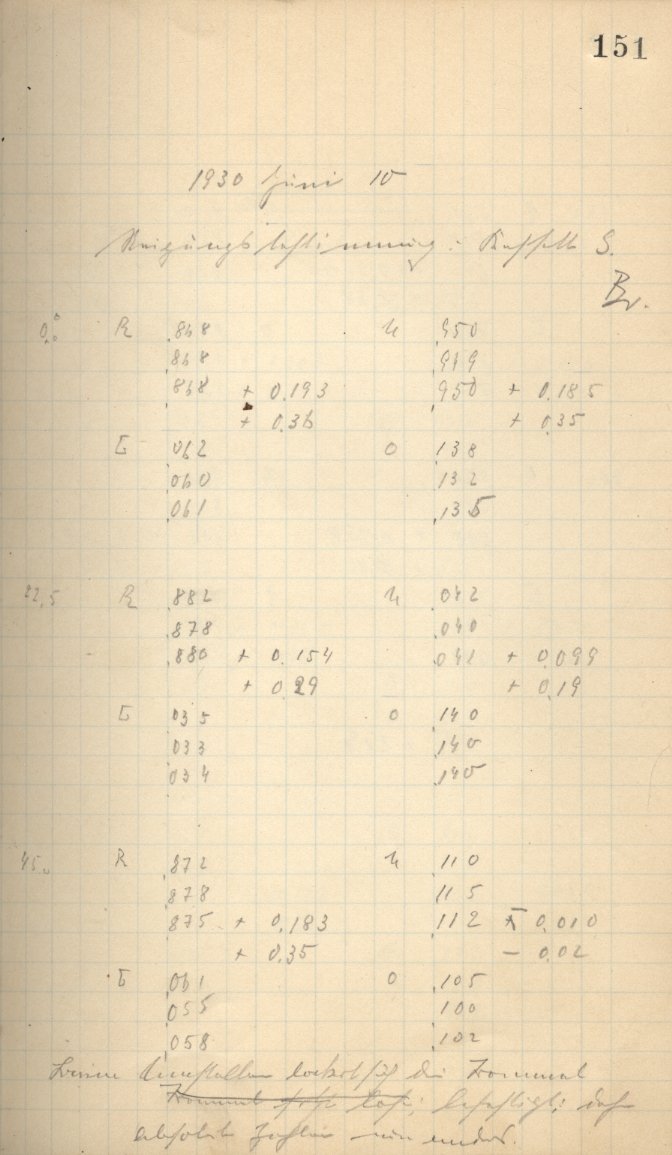 151
1930 Juni 10
Neigungsbestimmung: Kassette S.
Br.
0,0° R ,868 U ,950
,868 ,949
,868 + 0,193 ,950 + 0,185
+ 0,36 + 0,35
L ,062 O ,138
,060 ,132
,061 ,135
22,5 R ,882 U ,042
,878 ,040
,880 + 0,154 ,041 + 0,099
+ 0,29 + 0,19
L ,035 O ,140
,033 ,140
,034 ,140
45,0 R ,872 U ,110
,878 ,115
,875 + 0,183 ,112 - 0,010
+ 0,35 - 0,02
L ,061 O ,105
,055 ,100
,058 ,102
Beim Umstellen lockert sich die Trommel
Trommel sehr los; befestigt;
absolute Zahlen nun anders.